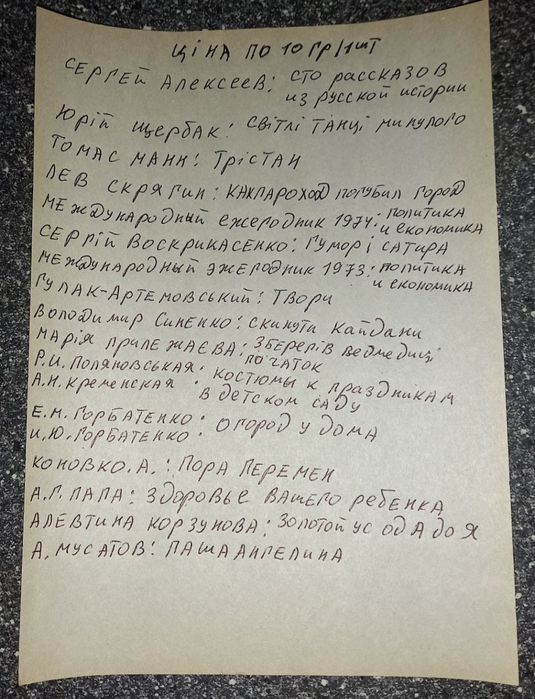 ЦІНА ПО 10 ГР/1ШТ
СЕРГЕЙ АЛЕКСЕЕВ: СТО РАССКАЗОВ
ИЗ РУССКОЙ ИСТОРИИ
ЮРІЙ ЩЕРБАК: СВІТЛІ ТАНЦІ МИНУЛОГО
ТОМАС МАНН: ТРІСТАН
ЛЕВ СКРЯГИН: КАК ПАРОХОД ПОГУБИЛ ГОРОД
МЕЖДУНАРОДНЫЙ ЕЖЕГОДНИК 1974: ПОЛИТИКА
И ЕКОНОМИКА
СЕРГІЙ ВОСКРИКАСЕНКО: ГУМОР І САТИРА
МЕЖДУНАРОДНЫЙ ЭЖЕГОДНИК 1973: ПОЛИТИКА
И ЕКОНОМИКА
ГУЛАК-АРТЕМОВСЬКИЙ: ТВОРИ
ВОЛОДИМИР СИНЕНКО: СКИНУТИ КАЙДАНИ
МАРІЯ ПРИЛЕЖАЄВА: З БЕРЕГІВ ВЕДМЕДИЦІ
ПОЧАТОК
Р.И. ПОЛЯНОВСЬКАЯ: КОСТЮМЫ К ПРАЗДНИКАМ
А.И. КРЕМЕНСКАЯ В ДЕТСКОМ САДУ
Е.Н. ГОРБАТЕНКО: ОГОРОД У ДОМА
И.Ю. ГОРБАТЕНКО:
КОНОВКО. А.: ПОРА ПЕРЕМЕН
А.Г. ПАПА: ЗДОРОВЬЕ ВАШЕГО РЕБЕНКА
АЛЕВТИНА КОРЗУНОВА: ЗОЛОТОЙ УС ОД А ДО Я
А, МУСАТОВ: ПАША АНГЕЛИНА